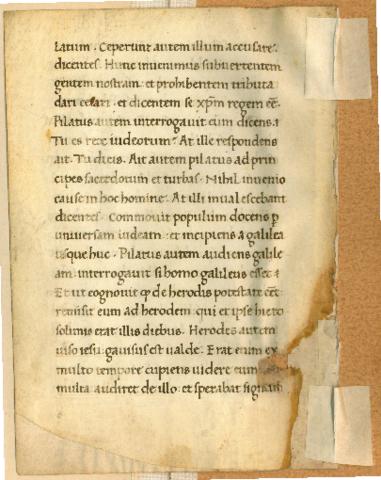 latum. Ceperunt autem illum accusare
dicentes. Hunc invenimus subvertentem
gentem nostram. et prohibentem tributa
dari cesari. et dicentem se xp̄m regem eē.
Pilatus autem interrogavit eum dicens.
Tu es rex iudeorum? At ille respondens
ait. Tu dicis. Ait autem pilatus ad prin
cipes sacerdotum et turbas. Nihil invenio
cause in hoc homine. At illi invalescebant
dicentes. Commovit populum docens p̱
universam iudeam. et incipiens a galilea
usque huc. Pilatus autem audiens galile
am. interrogavit si homo galileus esset.
Et ut cognovit qđ de herodis potestate eēt.
remisit eum ad herodem. qui et ipse hiero
solimis erat illis diebus. Herodes autem
viso iesu. gavisus est valde. Erat enim ex
multo tempore cupiens videre eum
multa audiret de illo. et sperabat signum